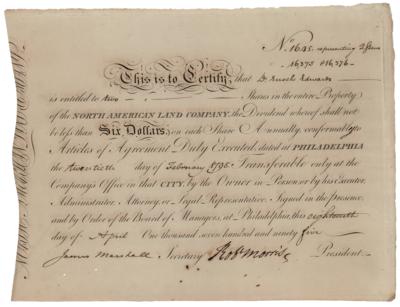 No. 1645 representing 2 Shares
16375 @ 16376
This is to Certify, that Dr Enoch Edwards
is entitled to two Shares in the entire Property
of the NORTH AMERICAN LAND COMPANY, the Dividend whereof shall not
be less than Six Dollars, on each Share Annually, conformably to
Articles of Agreement Duly Executed, dated at PHILADELPHIA
the twentieth day of February 1795. Transferable only at the
Company's Office in that CITY, by the Owner in Person or by his Executor,
Administrator, Attorney, or Legal Representative. Signed in the presence
and by Order of the Board of Managers, at Philadelphia, this eighteenth
day of April One thousand seven hundred and ninety five
James Marshall Secretary Robt Morris President